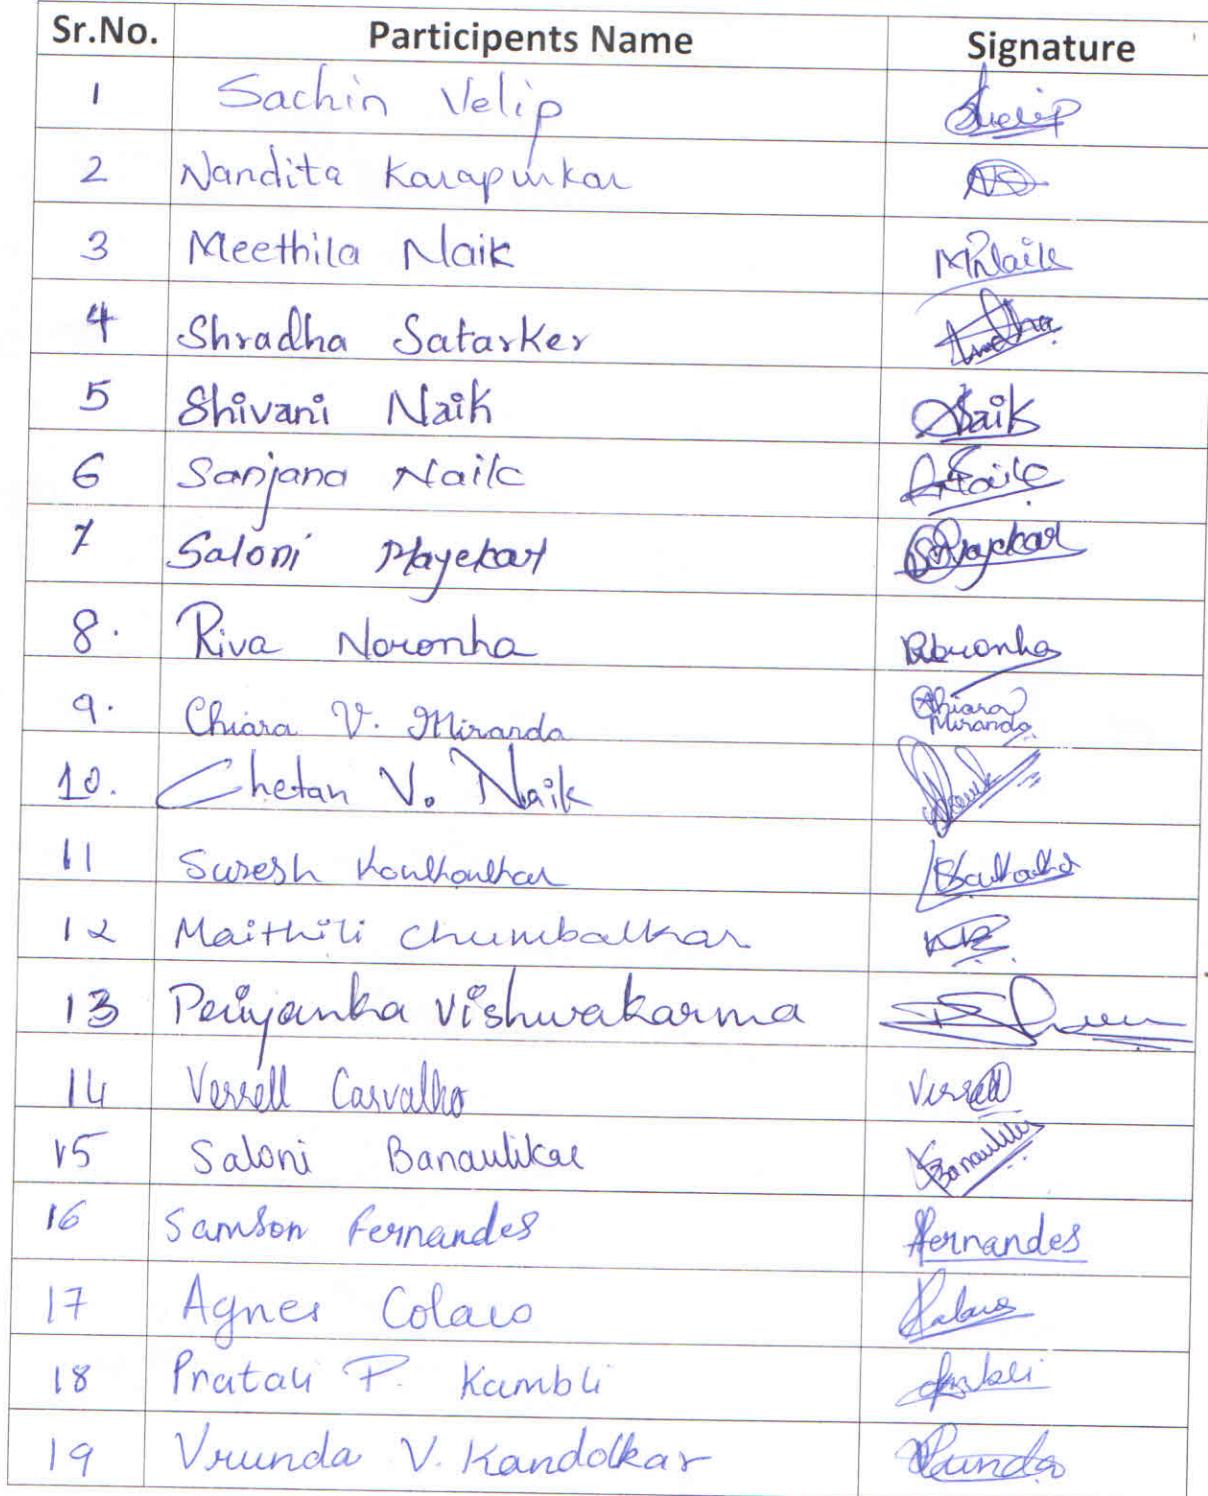 Sr.No. Participents Name Signature
1 Sachin Velip Svelip
2 Nandita Karapurkar
3 Meethila Naik MNaik
4 Shradha Satarker
5 Shivani Naik SNaik
6 Sanjana Naik Naik
7 Saloni Mayekar SMayekar
8. Riva Noronha RNoronha
9. Chiara V. Miranda Chiara Miranda
10. Chetan V. Naik
11 Suresh
12 Maithili Chumbalkar
13 Peiyanka Vishwakarma
14 Verrell Carvalho Verrell
15 Saloni Banaulikar SBanaulikar
16 Samson Fernandes Fernandes
17 Agnes Colaco
18 Pratali P. Kambli
19 Vrunda V. Kandolkar Vrunda